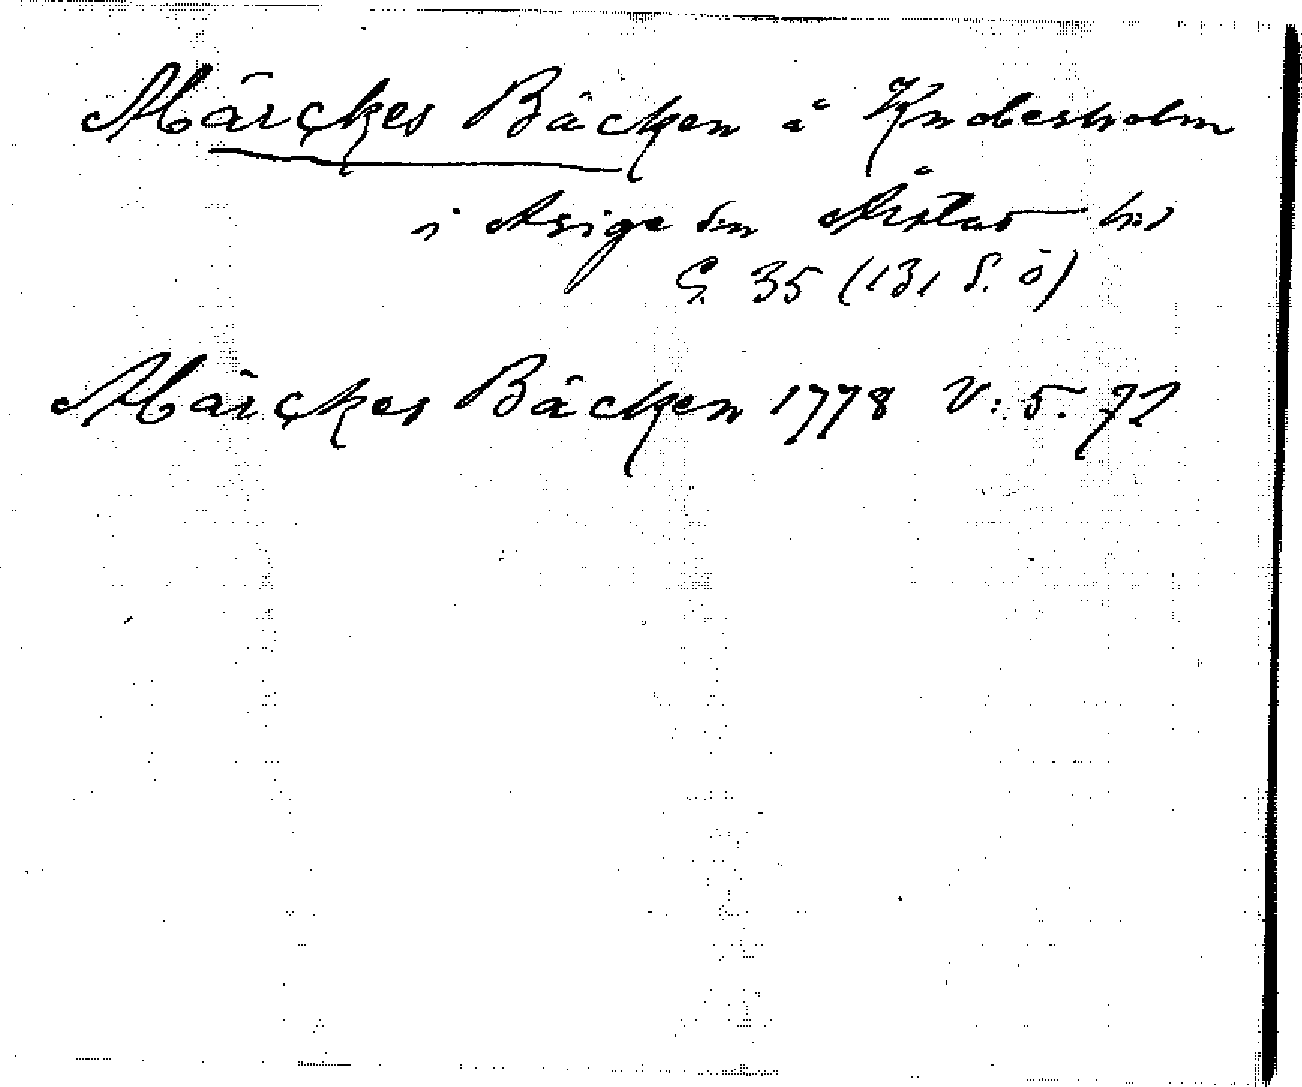 Märckes Bäcken å Knobesholm
i Asige sn Årstad hd
G. 35 (131 S. Ö)
Märckes Bäcken 1778 V: 5. 71